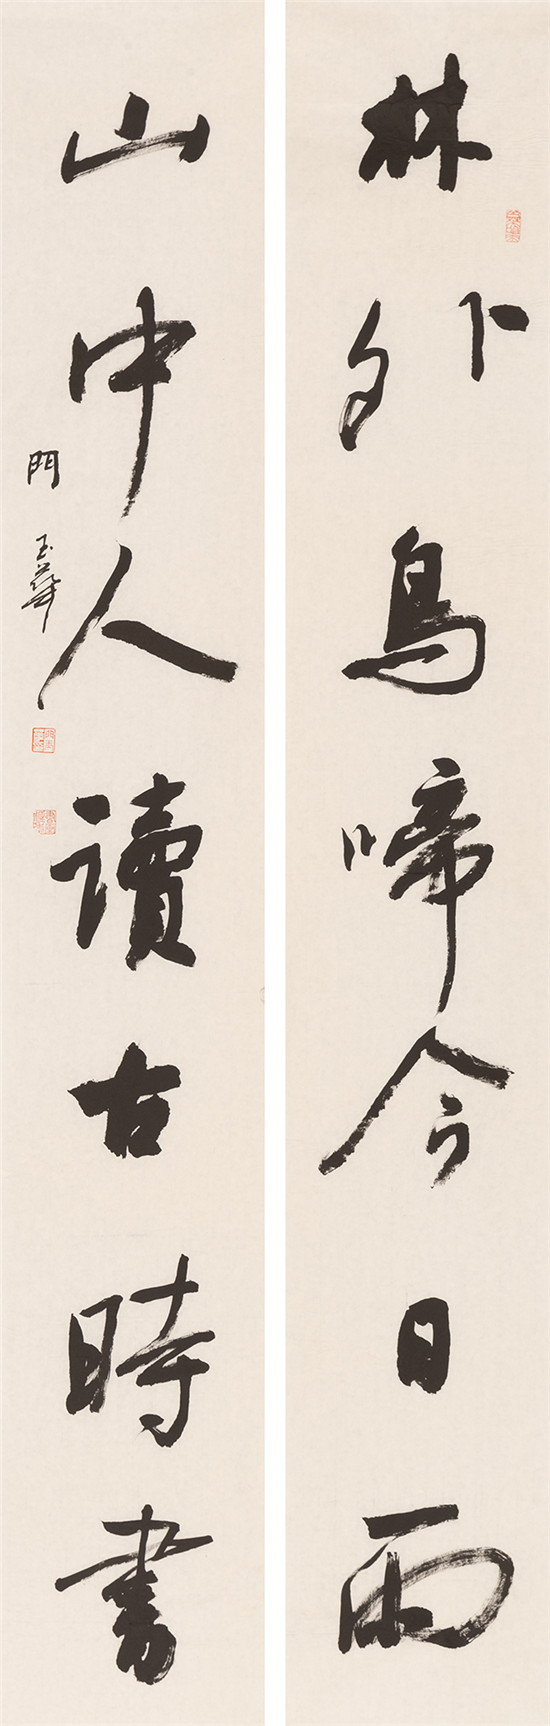 林外鳥啼今日雨
山中人讀古時書
門玉華